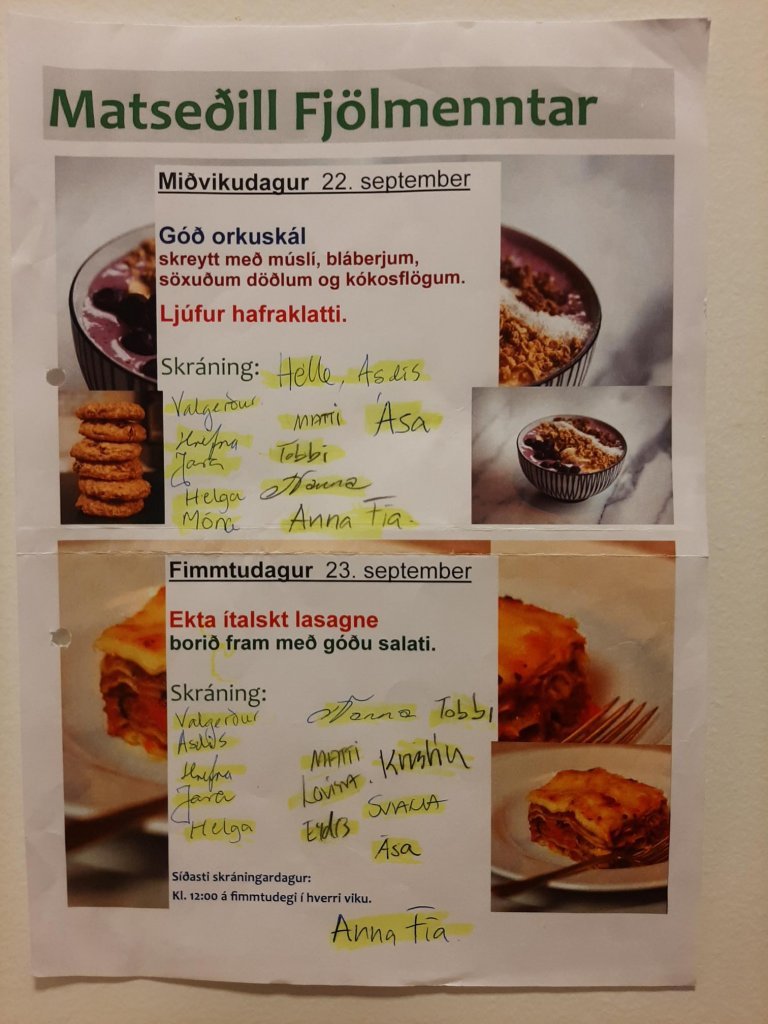 Matseðill Fjölmenntar
Miðvikudagur 22. september
Góð orkuskál
skreytt með múslí, bláberjum,
söxuðum döðlum og kókosflögum.
Ljúfur hafraklatti.
Skráning: Helle, Asdís
Valgerður MATTI Ása
Hrefna Tobbi
Jara
Helga Nanna
Móna Anna Fía.
Fimmtudagur 23. september
Ekta ítalskt lasagne
borið fram með góðu salati.
Skráning:
Valgerður Nanna Tobbi
Asdís
Hrefna MATTI Kristín
Jara Lovísa SVALA
Helga Eydís
Ása
Síðasti skráningardagur:
Kl. 12:00 á fimmtudegi í hverri viku.
Anna Fía